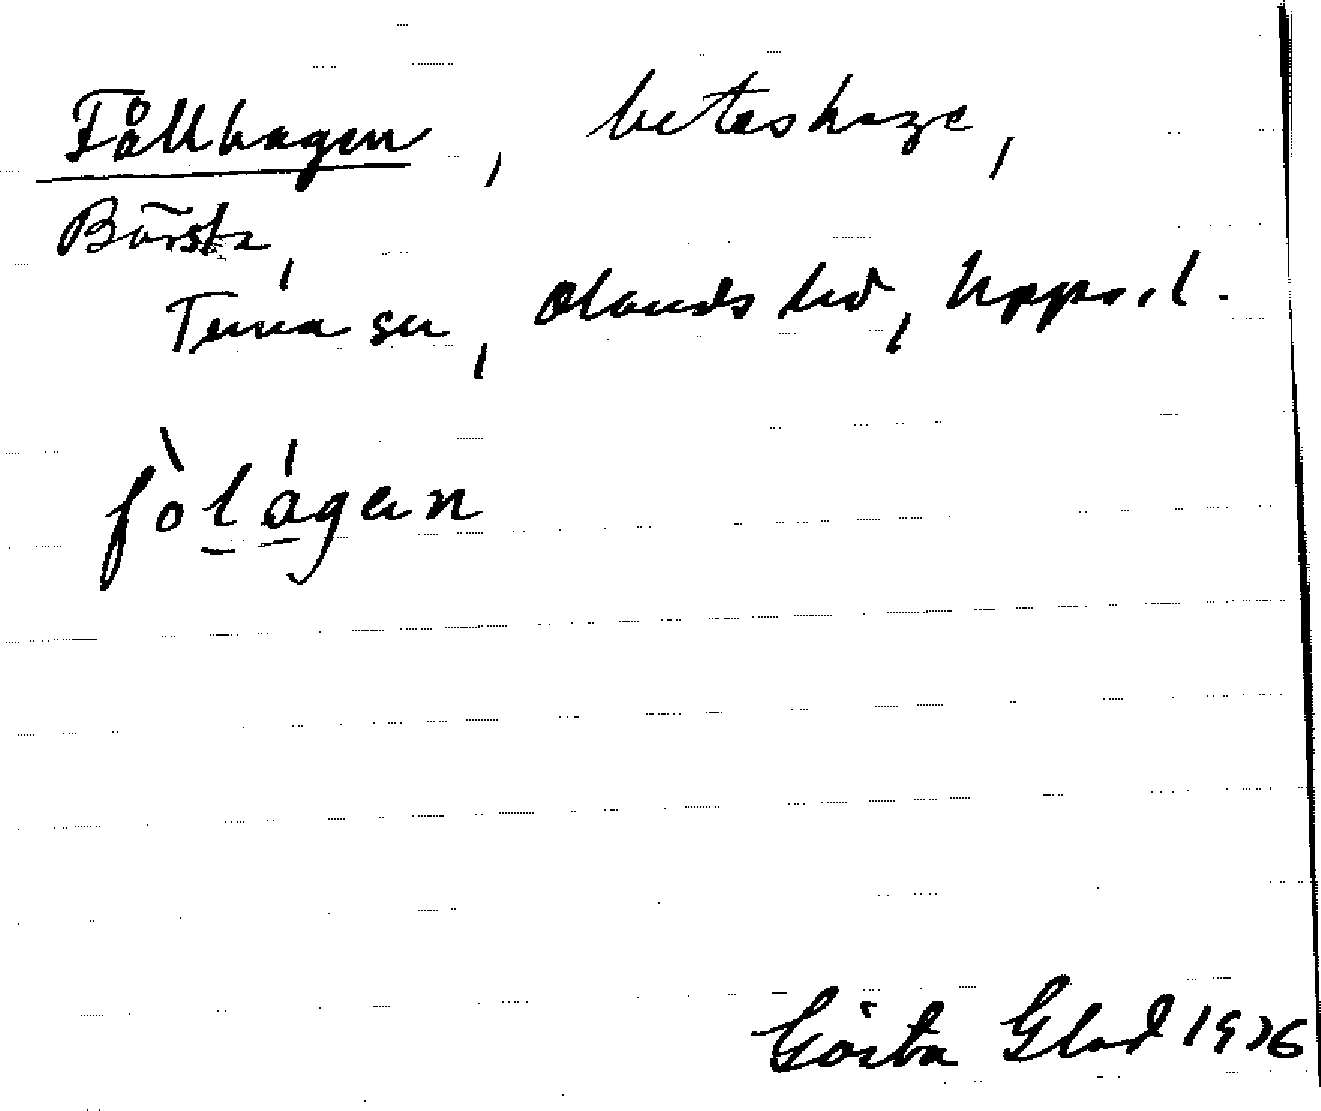 Fållhagen, beteshage,
Börsta,
Tuna sn, Olands hd, Upps. l.
fòlágan
Gösta Glad 1936